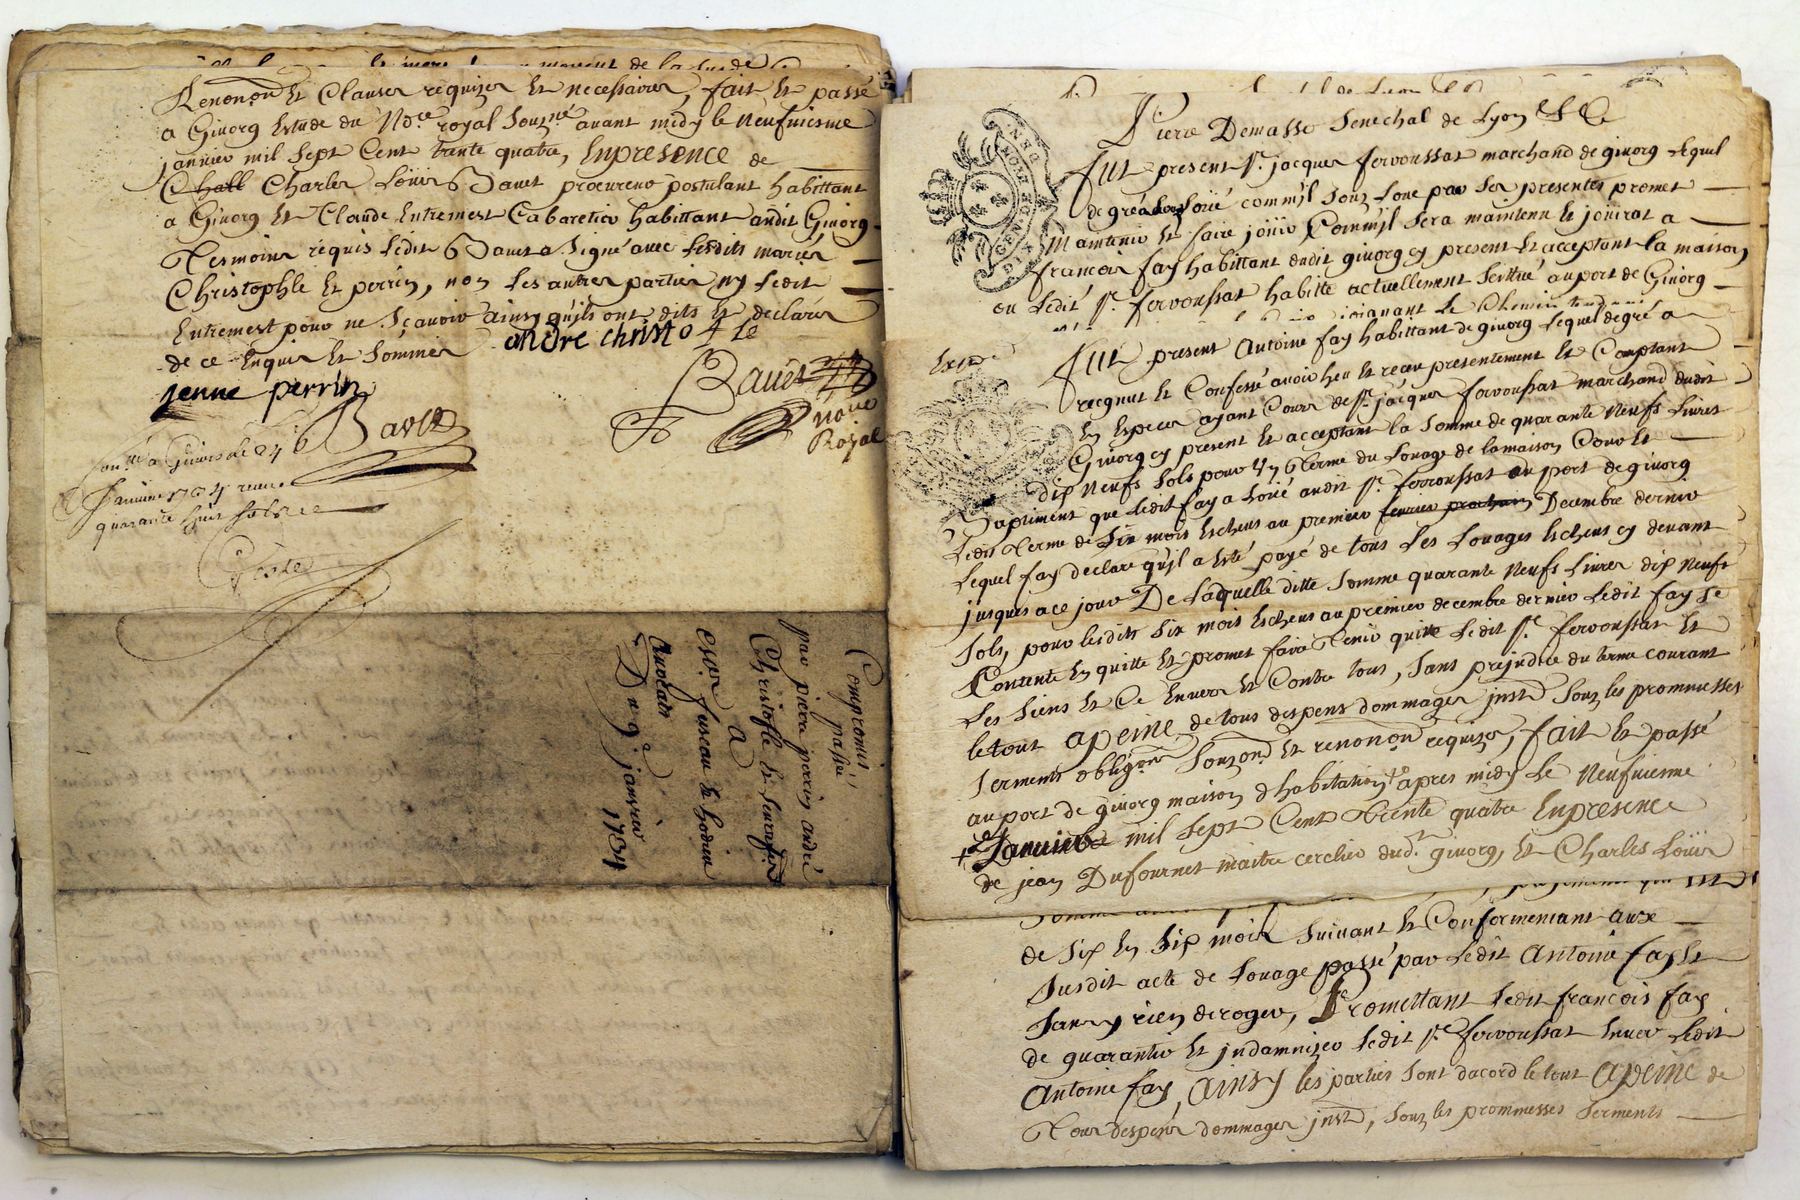 Renonçon Et Clauses requizes Et necessaires, fait Et passé
a Givorg Estude du No.re royal Souz.né avant midy le Neufviesme
janvier mil Sept Cent trente quatre, Enpresence de
Chall Charles Loüis Bavet procureur postulant habittant
a Givorg Et Claude Entremest Cabaretier habittant audit Givorg
Tesmoins requis Ledit Bavet a Signé avec Lesdits mariés
Christophle Et perrin, non Les autres parties ny Ledit
Entremest pour ne Sçavoir ainsy qu'ils ont dits Et declarés
de ce Enquis Et Sommés
andre christofle
jenne perrin
Bavet
No.re Royal
Janvier 1734 receu
quarante huit sols
Compromis
passée,
par pierre perrin andré
Christofle Et
A
Avocats
Du 9.e janvier
1734
Pierre Demasso Senechal de Lyon
GEN DE LYON
Fut present S.r jacques fervoussat marchand de givorg Lequel
de gré a Loüé comm'il Souz Loue par Ses presentes promet
Maintenir Et faire joüir Comm'il Sera maintenu Et joüirat a
francois fay habittant dudit givorg cy present Et acceptant La maison
ou Ledit S.r fervoussat habitte actuellement Scittué au port de Givorg
joignant Le Chemin tendant
Fut present Antoine fay habittant de givorg Lequel de gré a
recgnut Et Confessé avoir heu Et receu presentement Et Comptant
En Especes ayant Cours de S.r jacques fervoussat marchand dudit
Givorg cy present Et acceptant La Somme de quarante Neufs Livres
dix Neufs Sols pour Un Terme du Louage de La maison Cour Et
Bapliment que Ledit fay a Loüé audit S.r fervoussat au port de givorg
Ledit Terme de Six mois Escheus au premier fevrier prochain Decembre dernier
Lequel fay declare qu'il a Esté payé de tous Les Louages Escheus cy devant
jusques a ce jour De Laquelle ditte Somme quarante Neufs Livres dix Neufs
Sols, pour Lesdits Six mois Escheus au premier decembre dernier Ledit fay Se
Contente En quitte Et promet faire Tenir quitte Ledit S.r fervoussat Et
Les Siens Et Ce Envers Et Contre tous, Sans prejudice du terme courant
le tout apeine de tous despens dommages jnst Souz les prommesses
Serments obligaon Souzon Et renonçon requizes, fait Et passé
au port de givorg maison d'habitation apres midy Le Neufviesme
Janvier mil Sept Cent Trente quatre Enpresence
de jean Dufournet maitre cerclier dud.t givorg, Et Charles Loüis
de Six En Six mois Suivant Et Conformement aux
Susdit acte de Louage passé par Ledit Antoine fay Et
Sans y rien deroger, Promettant Ledit francois fay
de guarantir Et jndamnizer Ledit S.r fervoussat Envers Ledit
Antoine fay, Ainsy les parties Sont dacord le tout apeine de
Tous despens dommages jnst, Souz les prommesses Serments